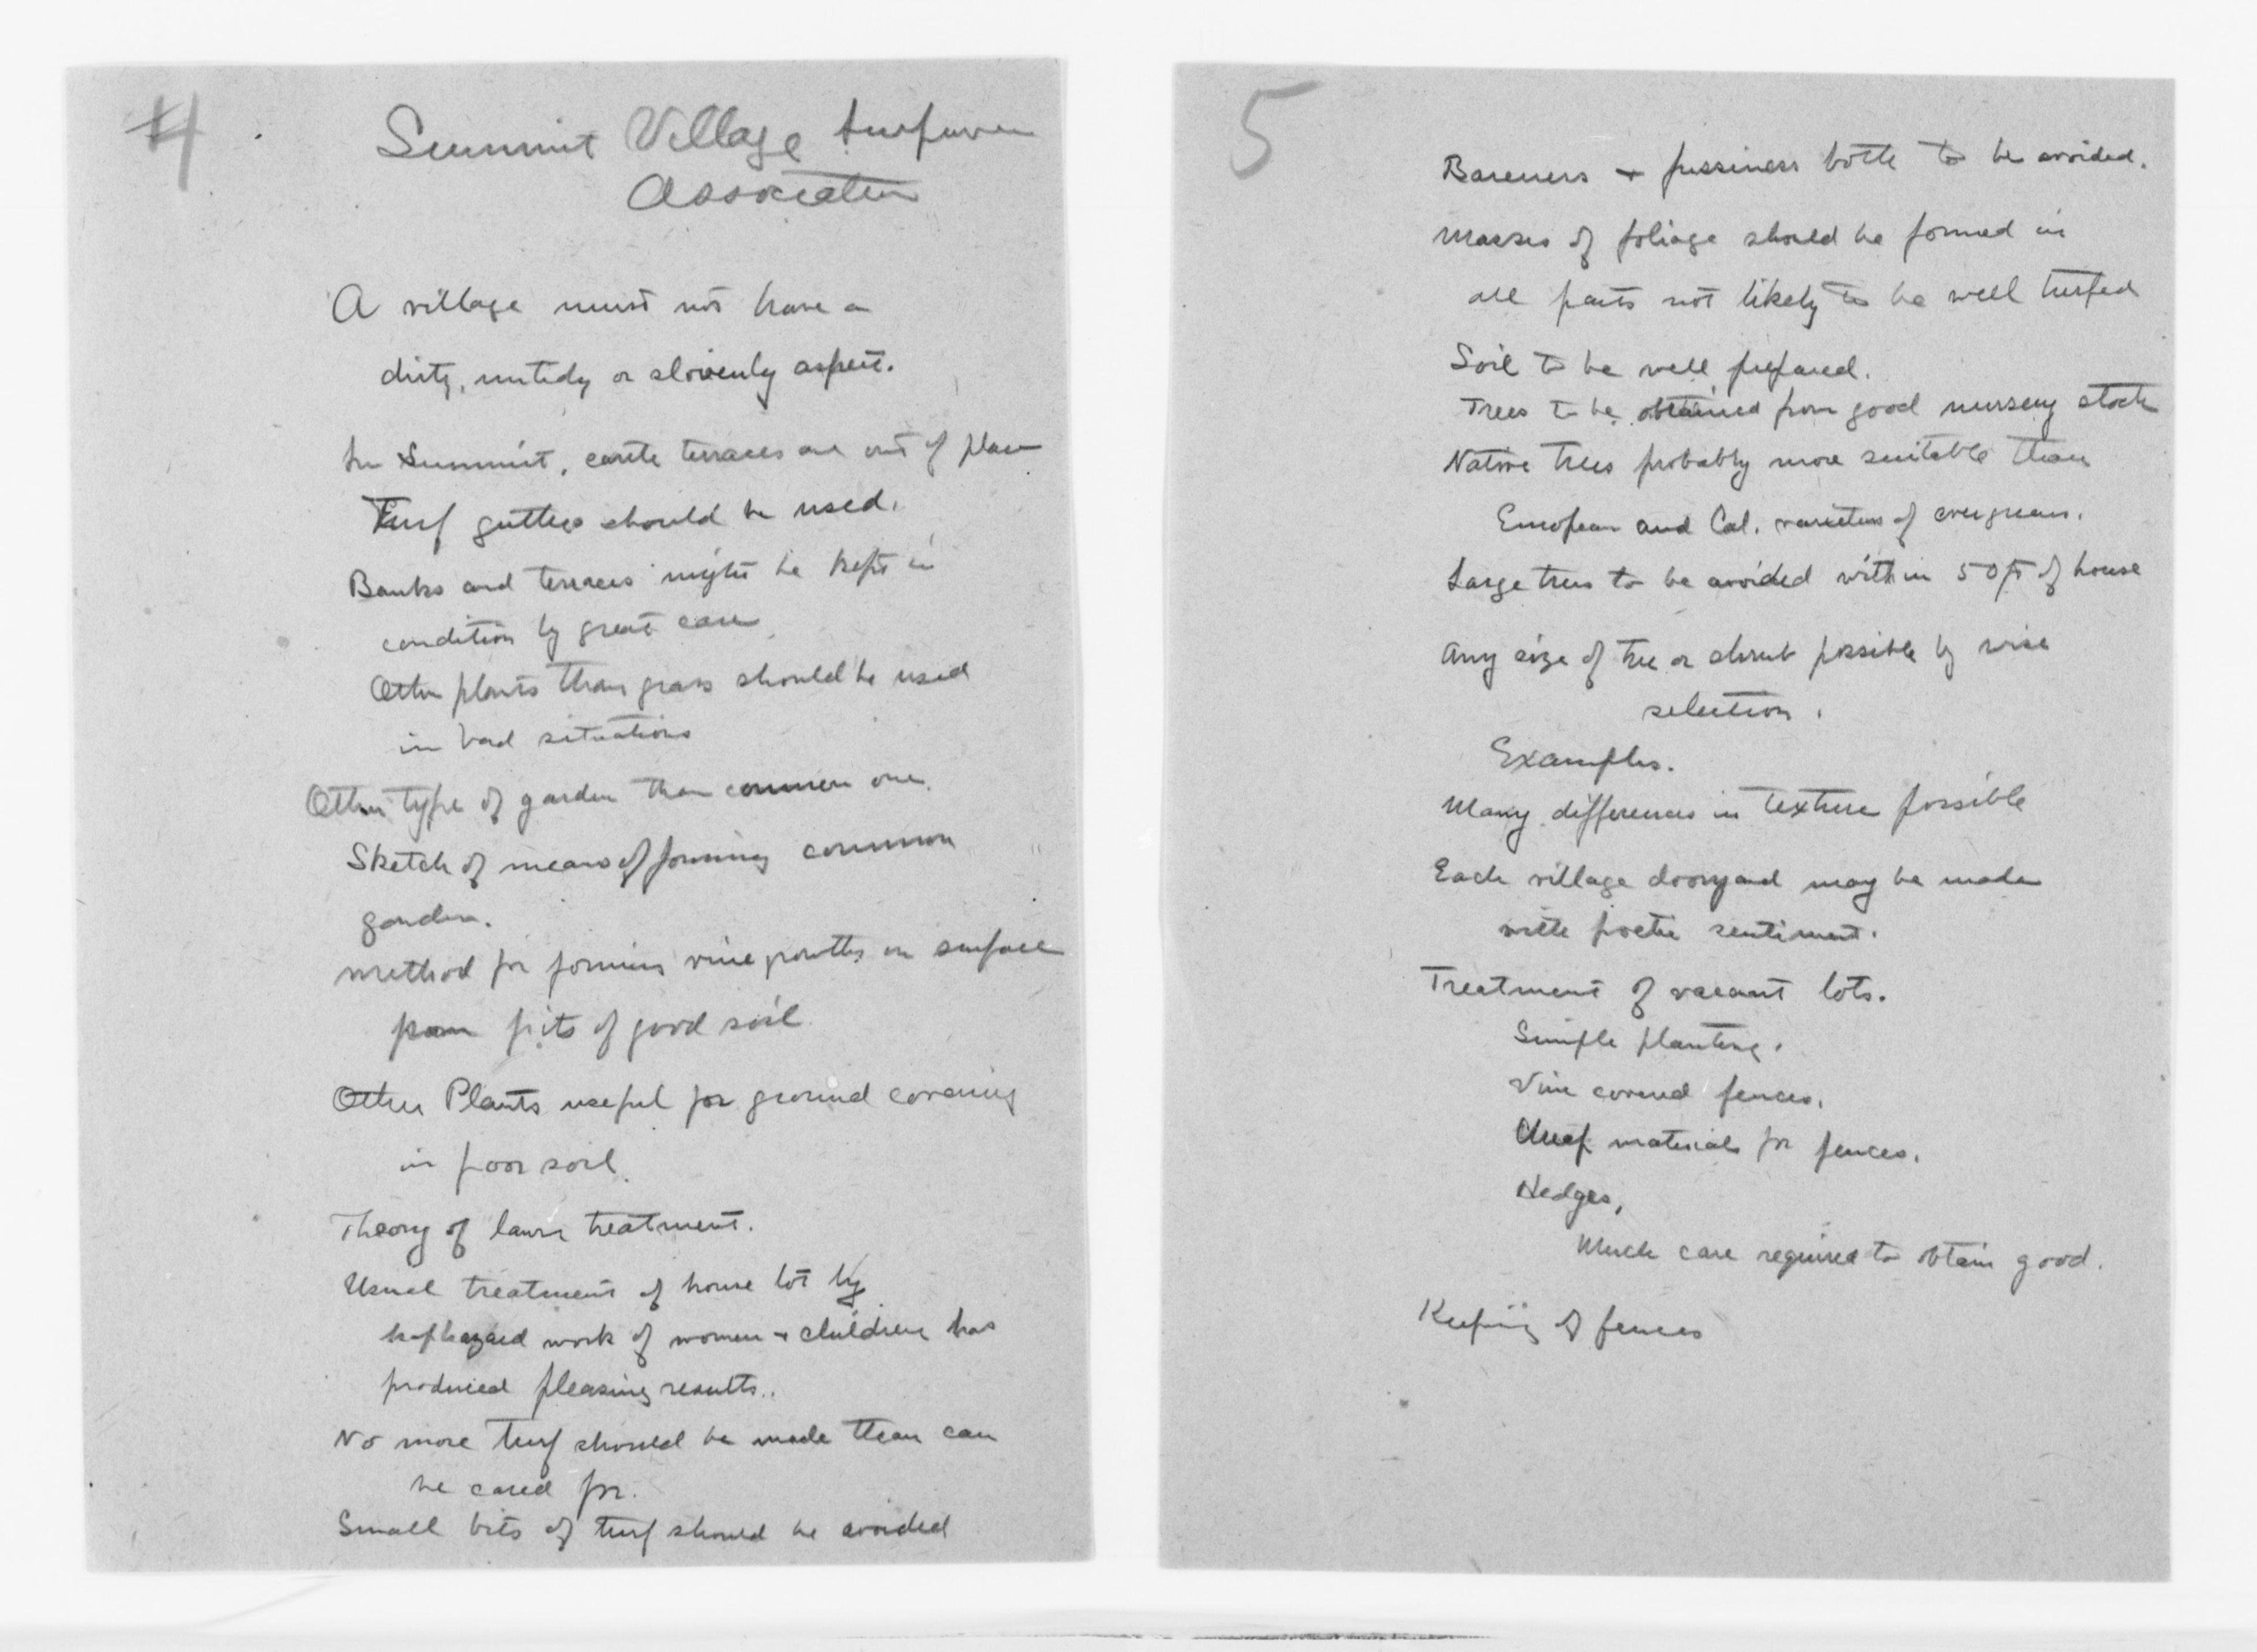 4
Summit Village Improvement
Association
A village must not have a
dirty, untidy or slovenly aspect.
In Summit, earth terraces are out of place
Turf gutters should be used.
Banks and terraces might be kept in
condition by great care
Other plants than grass should be used
in bad situations
Other type of garden than common one.
Sketch of means of forming common
garden.
Method for forming vine growths on surface
from pits of good soil
Other Plants useful for ground covering
in poor soil.
Theory of lawn treatment.
Usual treatment of house lot by
haphazard work of women + children has
produced pleasing results.
No more turf should be made than can
be cared for.
Small bits of turf should be avoided
5
Bareness + fussiness both to be avoided.
Masses of foliage should be formed in
all parts not likely to be well turfed
Soil to be well prepared.
Trees to be obtained from good nursery stock
Native trees probably more suitable than
European and Cal. varieties of evergreens.
Large trees to be avoided within 50 ft of house
Any size of tree or shrub possible by wise
selection.
Examples.
Many differences in texture possible
Each village dooryard may be made
with poetic sentiment.
Treatment of vacant lots.
Simple planting.
Vine covered fences.
Cheap materials for fences.
Hedges,
Much care required to obtain good.
Keeping of fences